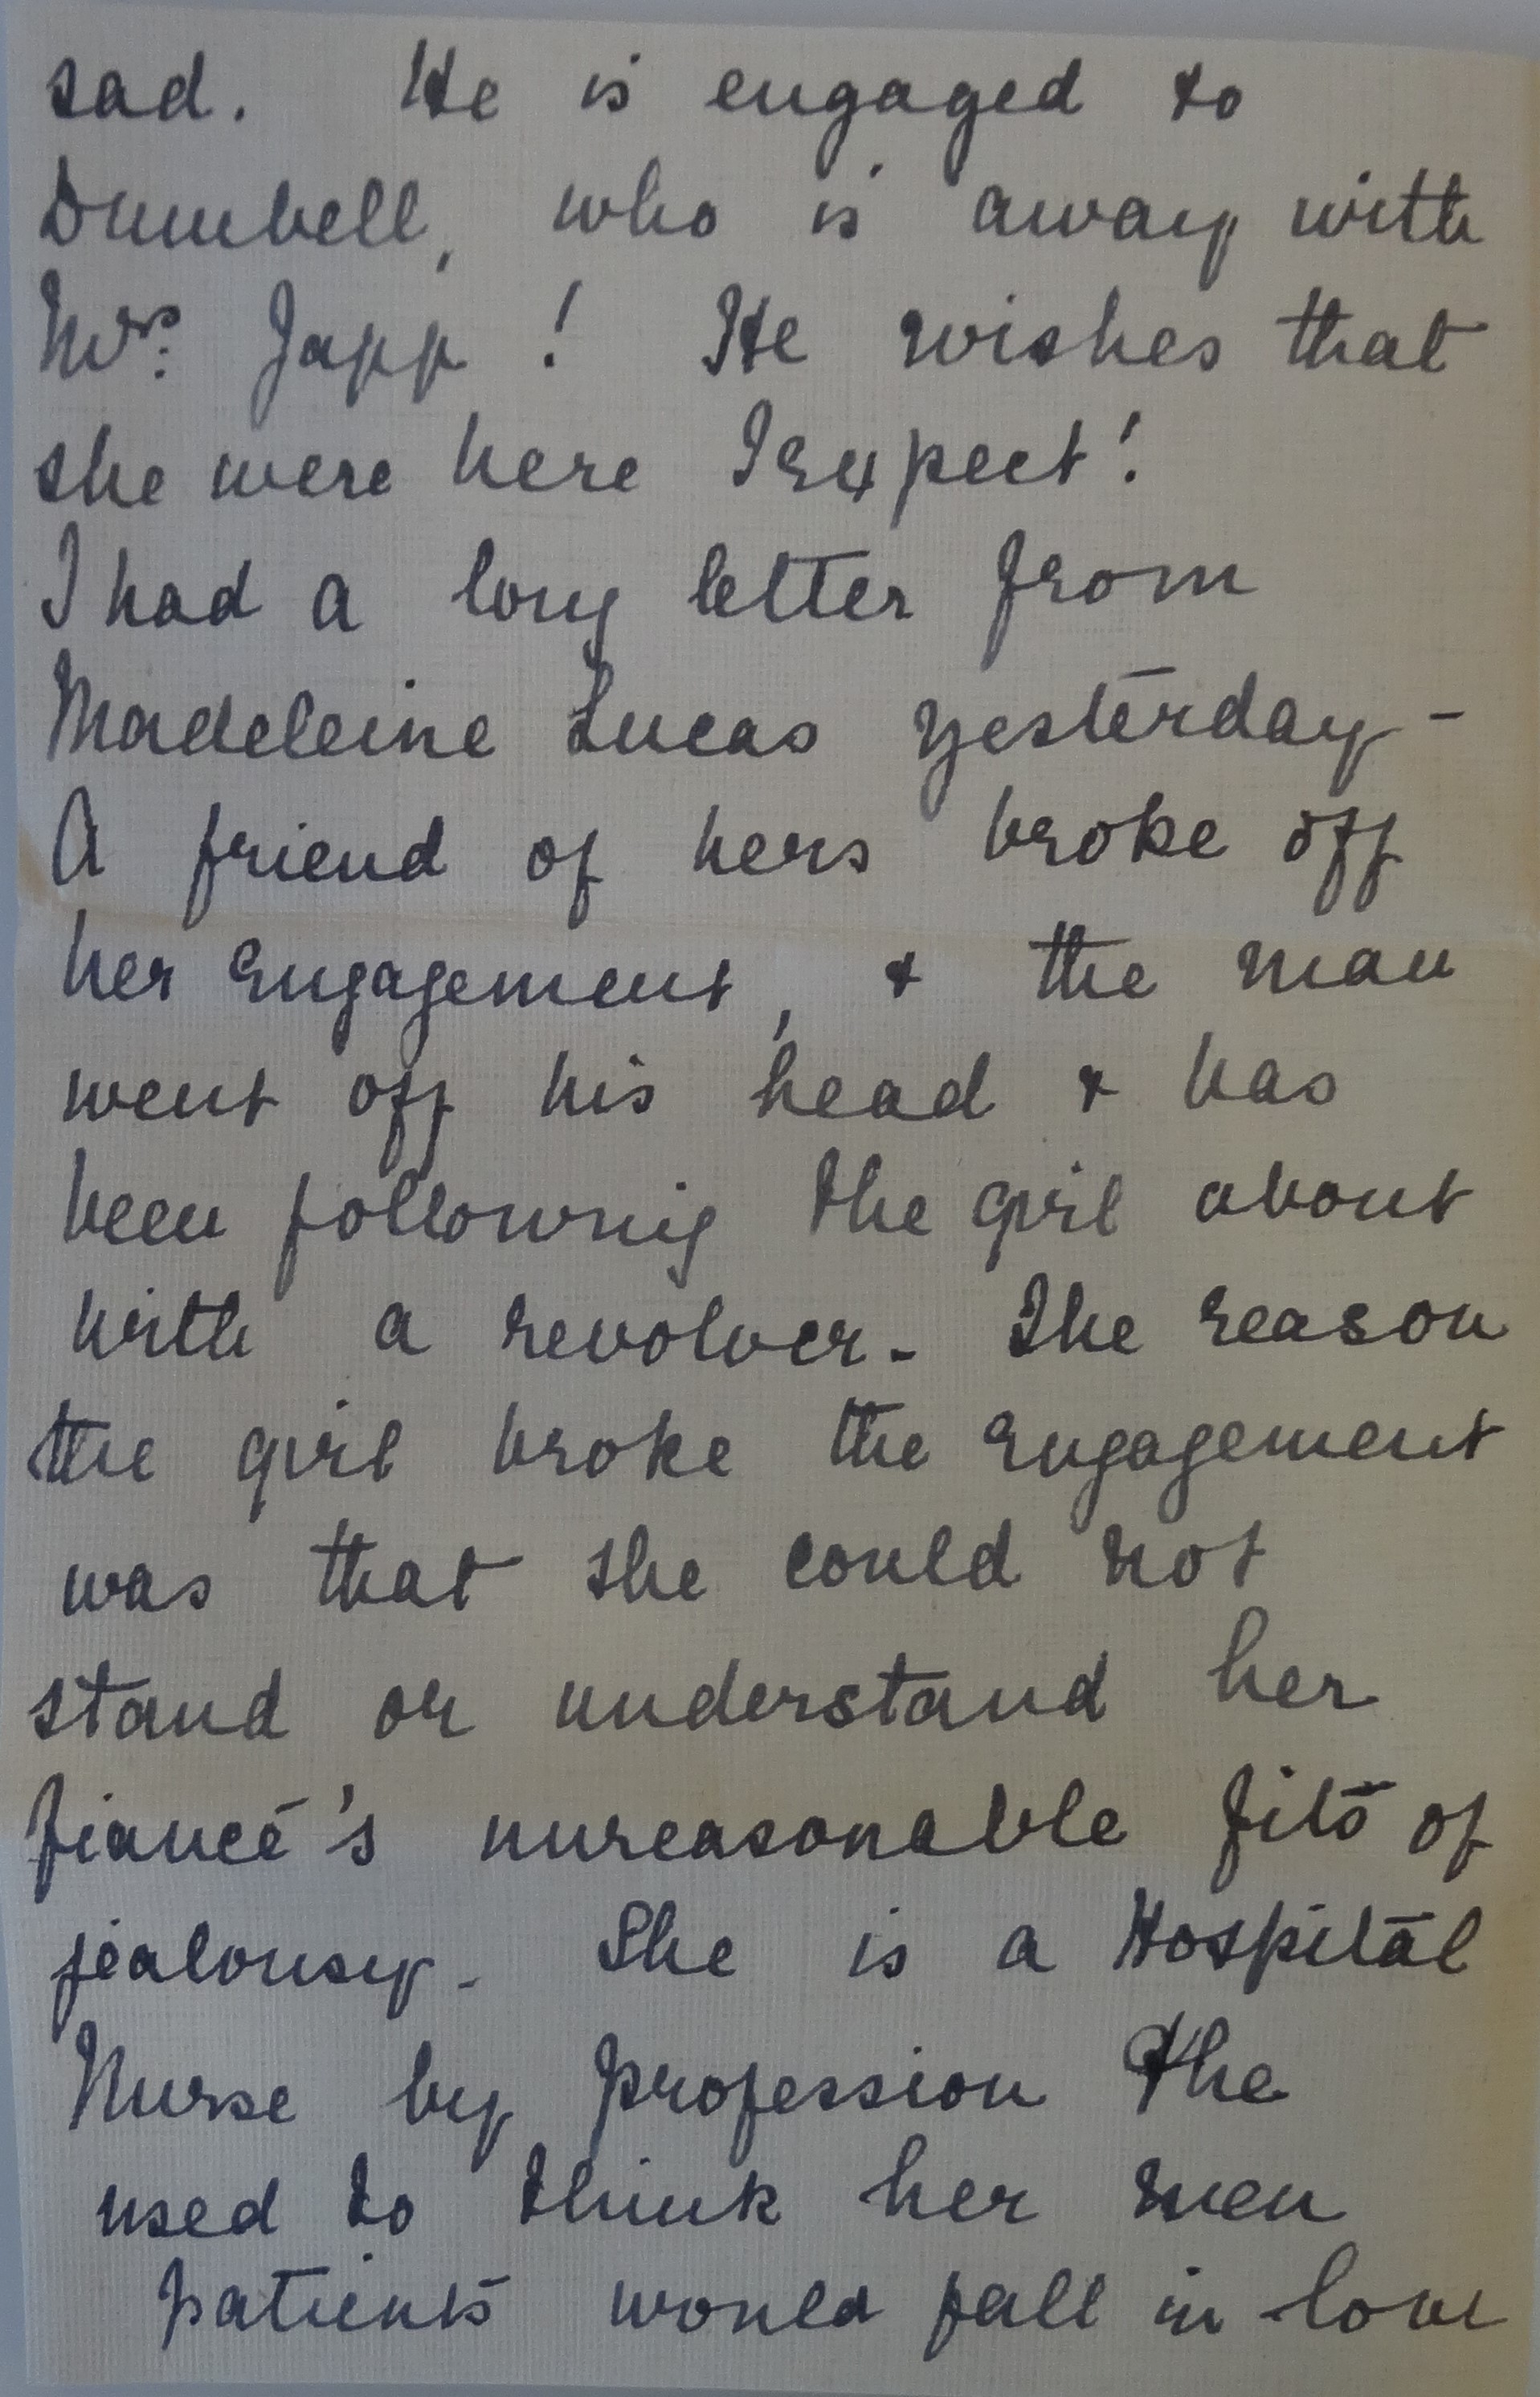 sad. He is engaged to
Dumbell, who is away with
Mrs. Japp! He wishes that
she were here I expect!
I had a long letter from
Madeleine Lucas yesterday -
A friend of hers broke off
her engagement, & the man
went off his head & has
been following the girl about
with a revolver. The reason
the girl broke the engagement
was that she could not
stand or understand her
fiancé's unreasonable fits of
jealousy. She is a Hospital
Nurse by profession & he
used to think her men
patients would fall in love